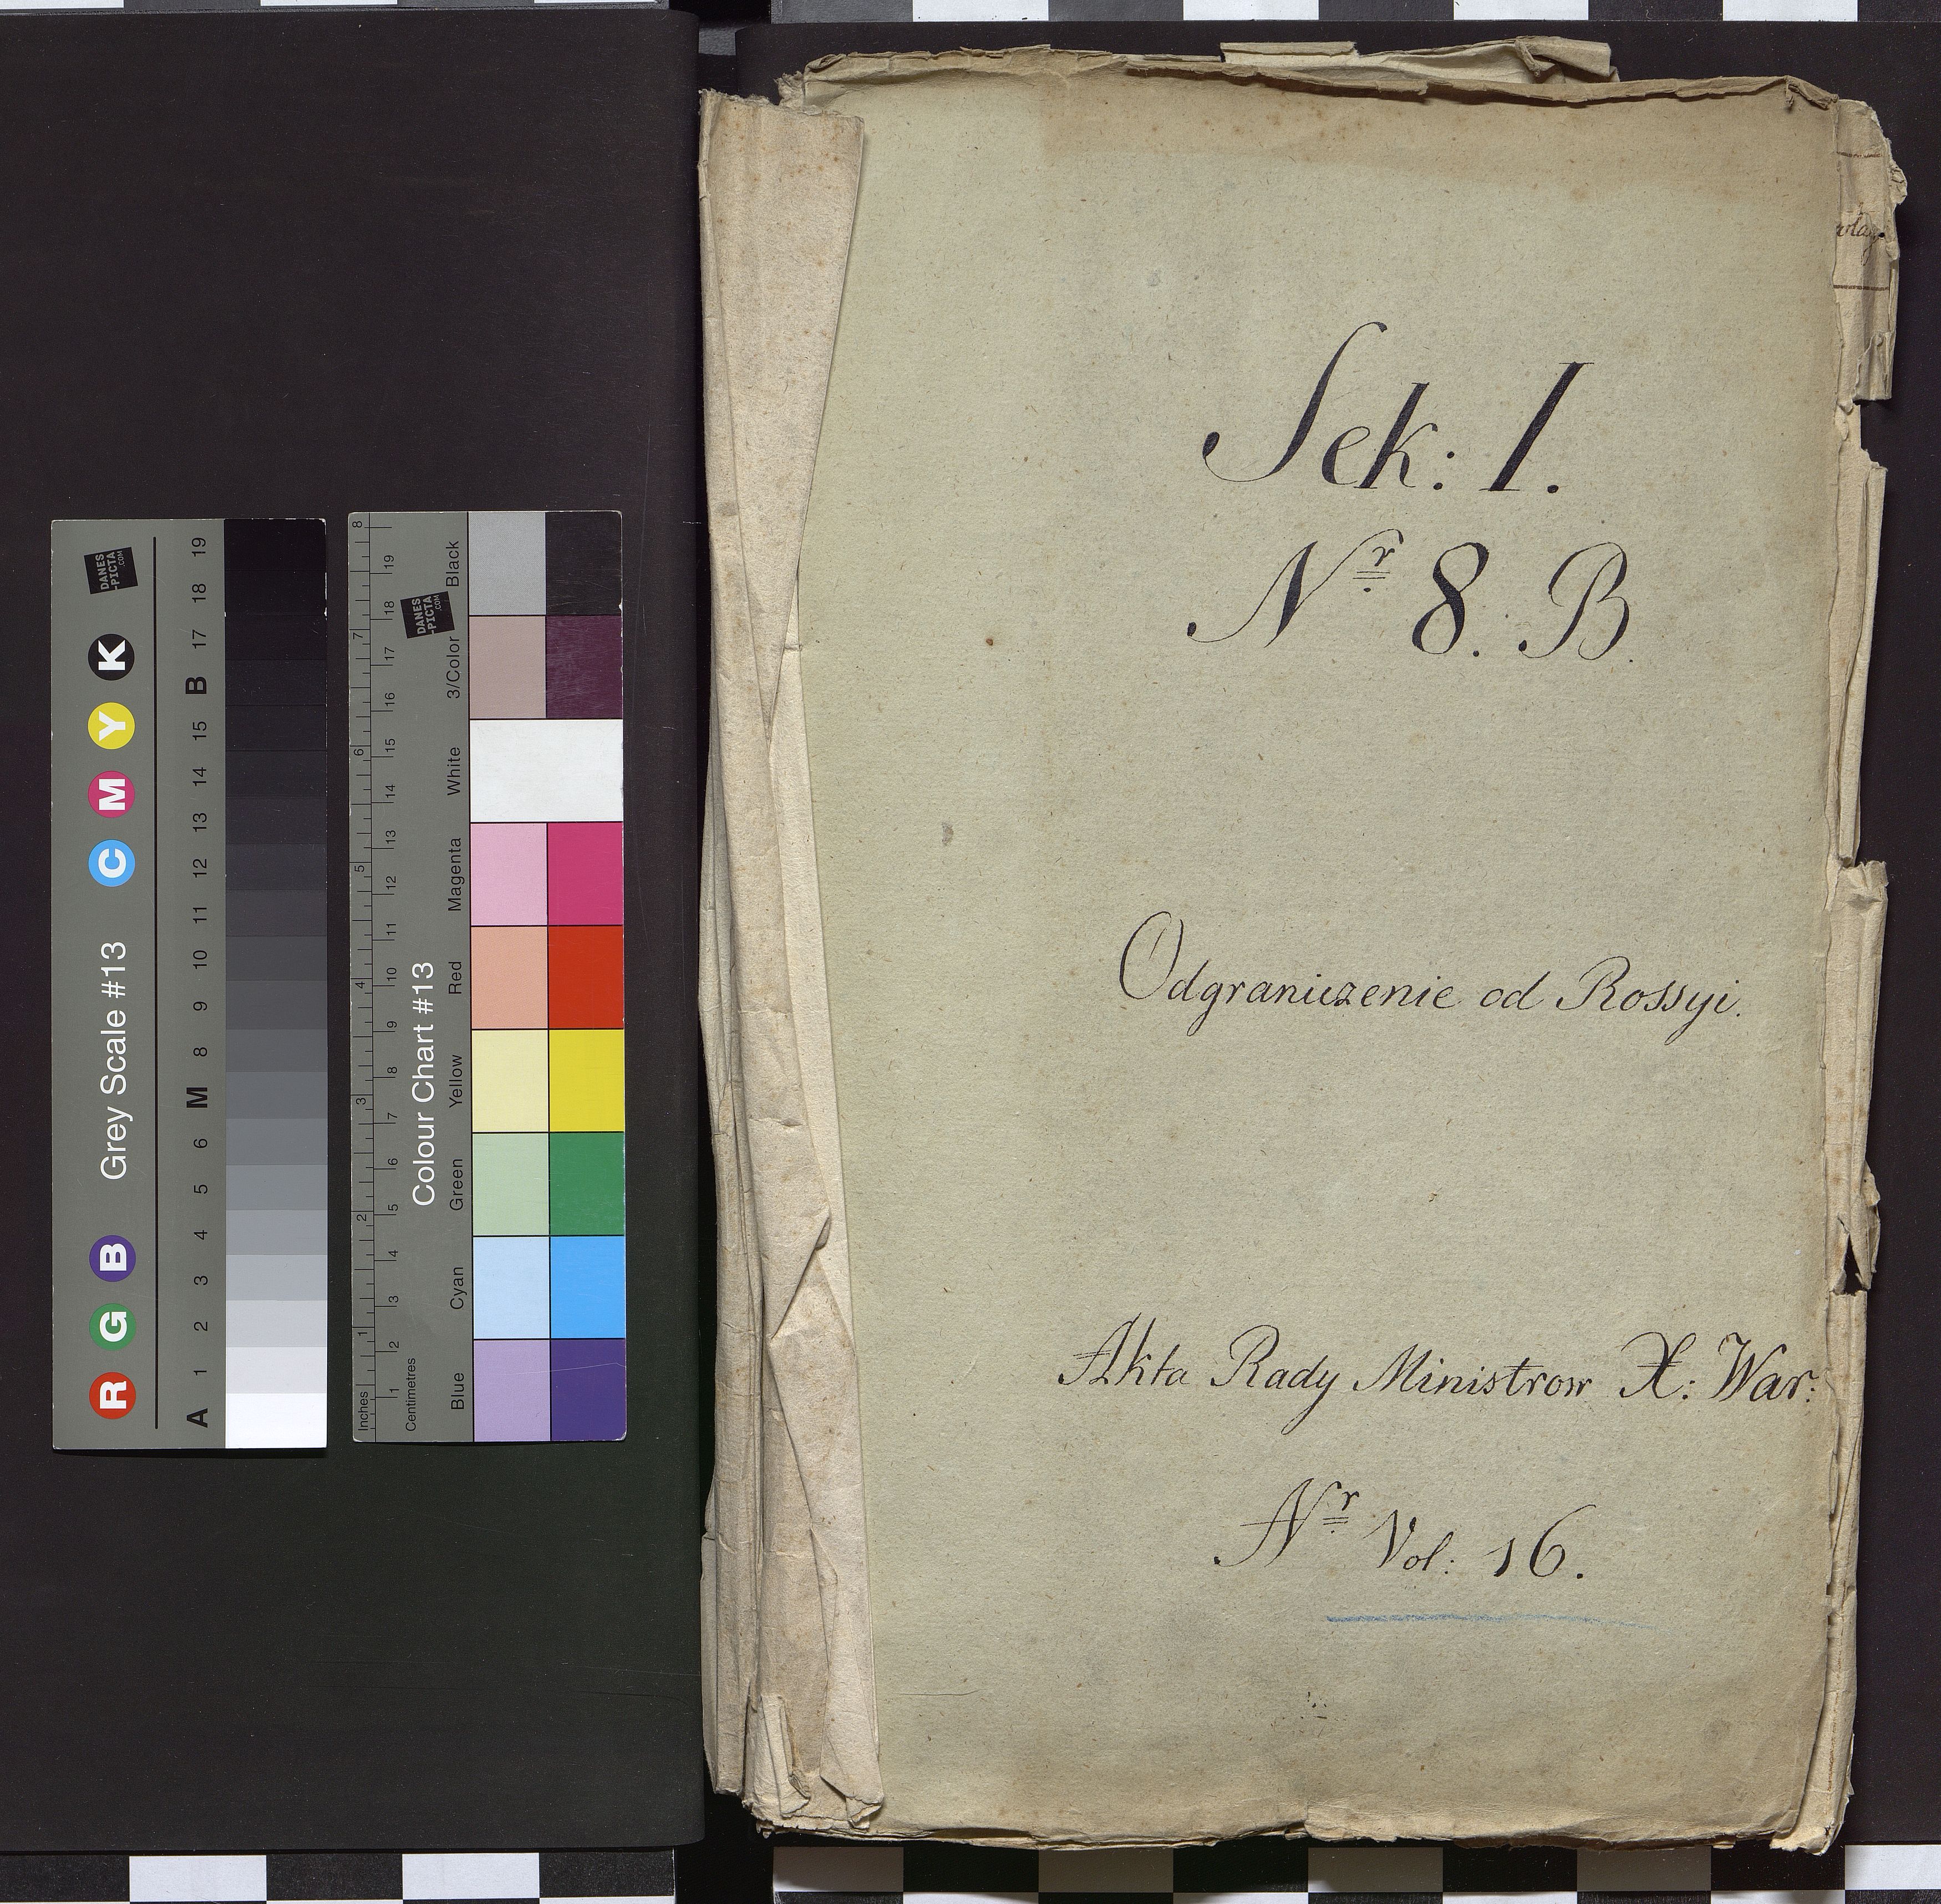 Sek: I.
Nr 8. B.
Odgraniczenie od Rossyi.
Akta Rady Ministrow X: War:
Nr Vol: 16.
Grey Scale #13
R G B C M Y K
A 1 2 3 4 5 6 M 8 9 10 11 12 13 14 15 B 17 18 19
DANES
-PICTA
.COM
Colour Chart #13
Blue Cyan Green Yellow Red Magenta White 3/Color Black
Inches 1 2 3 4 5 6 7 8
Centimetres 1 2 3 4 5 6 7 8 9 10 11 12 13 14 15 16 17 18 19
DANES
-PICTA
.COM